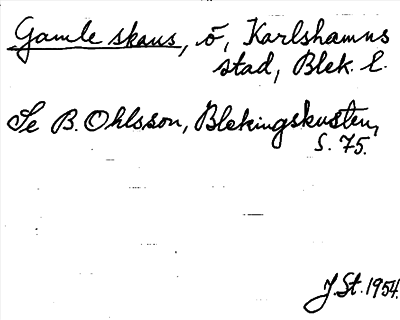 Gamle skans, ö, Karlshamns
stad, Blek. l.
Se B. Ohlsson, Blekingskusten,
s. 75.
J. St. 1954.